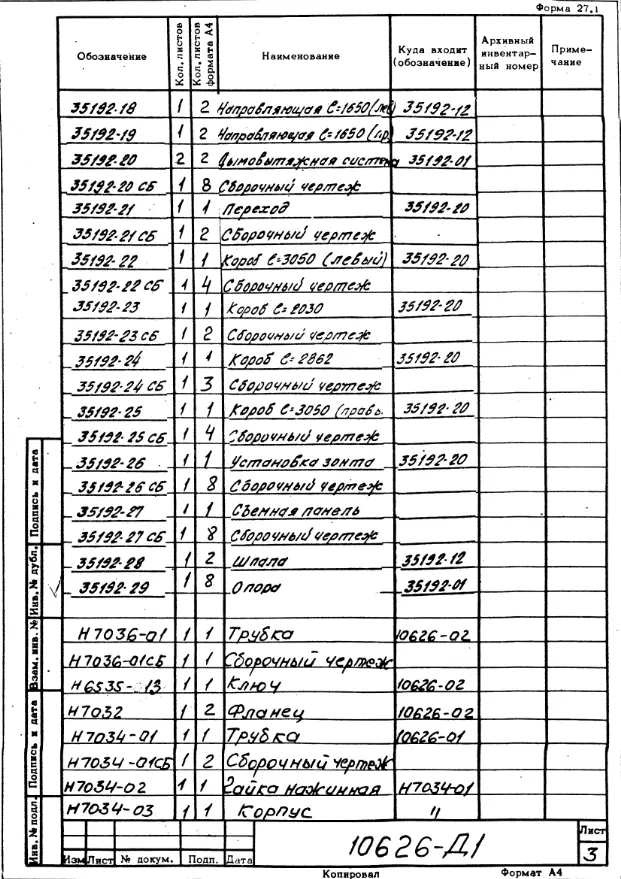 Форма 27.1
Обозначение Кол. листов Кол. листов формата А4 Наименование Куда входит (обозначение) Архивный инвентар-ный номер Приме-чание
35192-18 1 2 Направляющая ℓ=1650 (лев) 35192-12
35192-19 1 2 Направляющая ℓ=1650 (пр) 35192-12
35192.20 2 2 Дымовытяжная система 35192-01
35192-20 СБ 1 8 Сборочный чертеж
35192-21 1 1 Переход 35192-20
35192-21 СБ 1 2 Сборочный чертеж
35192-22 1 1 Короб ℓ=3050 (левый) 35192-20
35192-22 СБ 1 4 Сборочный чертеж
35192-23 1 1 Короб ℓ=2030 35192-20
35192-23 СБ 1 2 Сборочный чертеж
35192-24 1 1 Короб ℓ=2862 35192-20
35192-24 СБ 1 3 Сборочный чертеж
35192-25 1 1 Короб ℓ=3050 (правь. 35192-20
35192-25 СБ 1 4 Сборочный чертеж
35192-26 1 1 Установка зонта 35192-20
35192-26 СБ 1 8 Сборочный чертеж
35192-27 1 1 Съемная панель
35192-27 СБ 1 8 Сборочный чертеж
35192-28 1 2 Шпала 35192-12
35192-29 1 8 Опора 35192-01
Н7036-01 1 1 Трубка 10626-02
Н7036-01СБ 1 1 Сборочный чертеж
Н6535-13 1 1 Ключ 10626-02
Н7032 1 2 Фланец 10626-02
Н7034-01 1 1 Трубка 10626-01
Н7034-01СБ 1 2 Сборочный чертеж
Н7034-02 1 1 Гайка нажимная Н7034-01
Н7034-03 1 1 Корпус "
Подпись и дата
Инв. № дубл.
Взам. инв. №
Подпись и дата
Инв. № подл.
Изм Лист № докум. Подп. Дата
10626-Д1
Лист
3
Копировал Формат А4